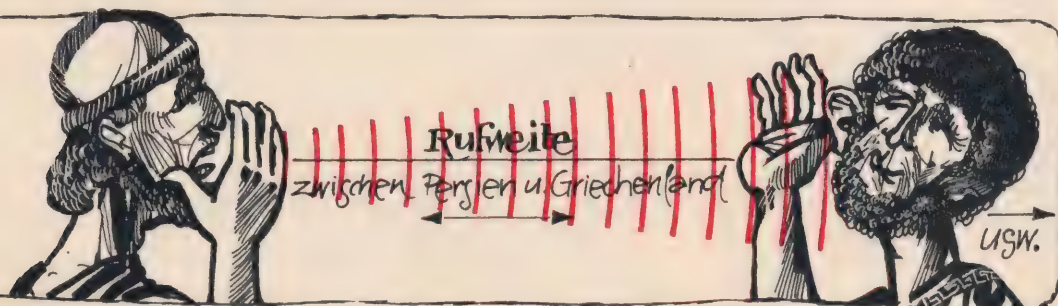 Rufweite
zwischen Persien u. Griechenland
usw.